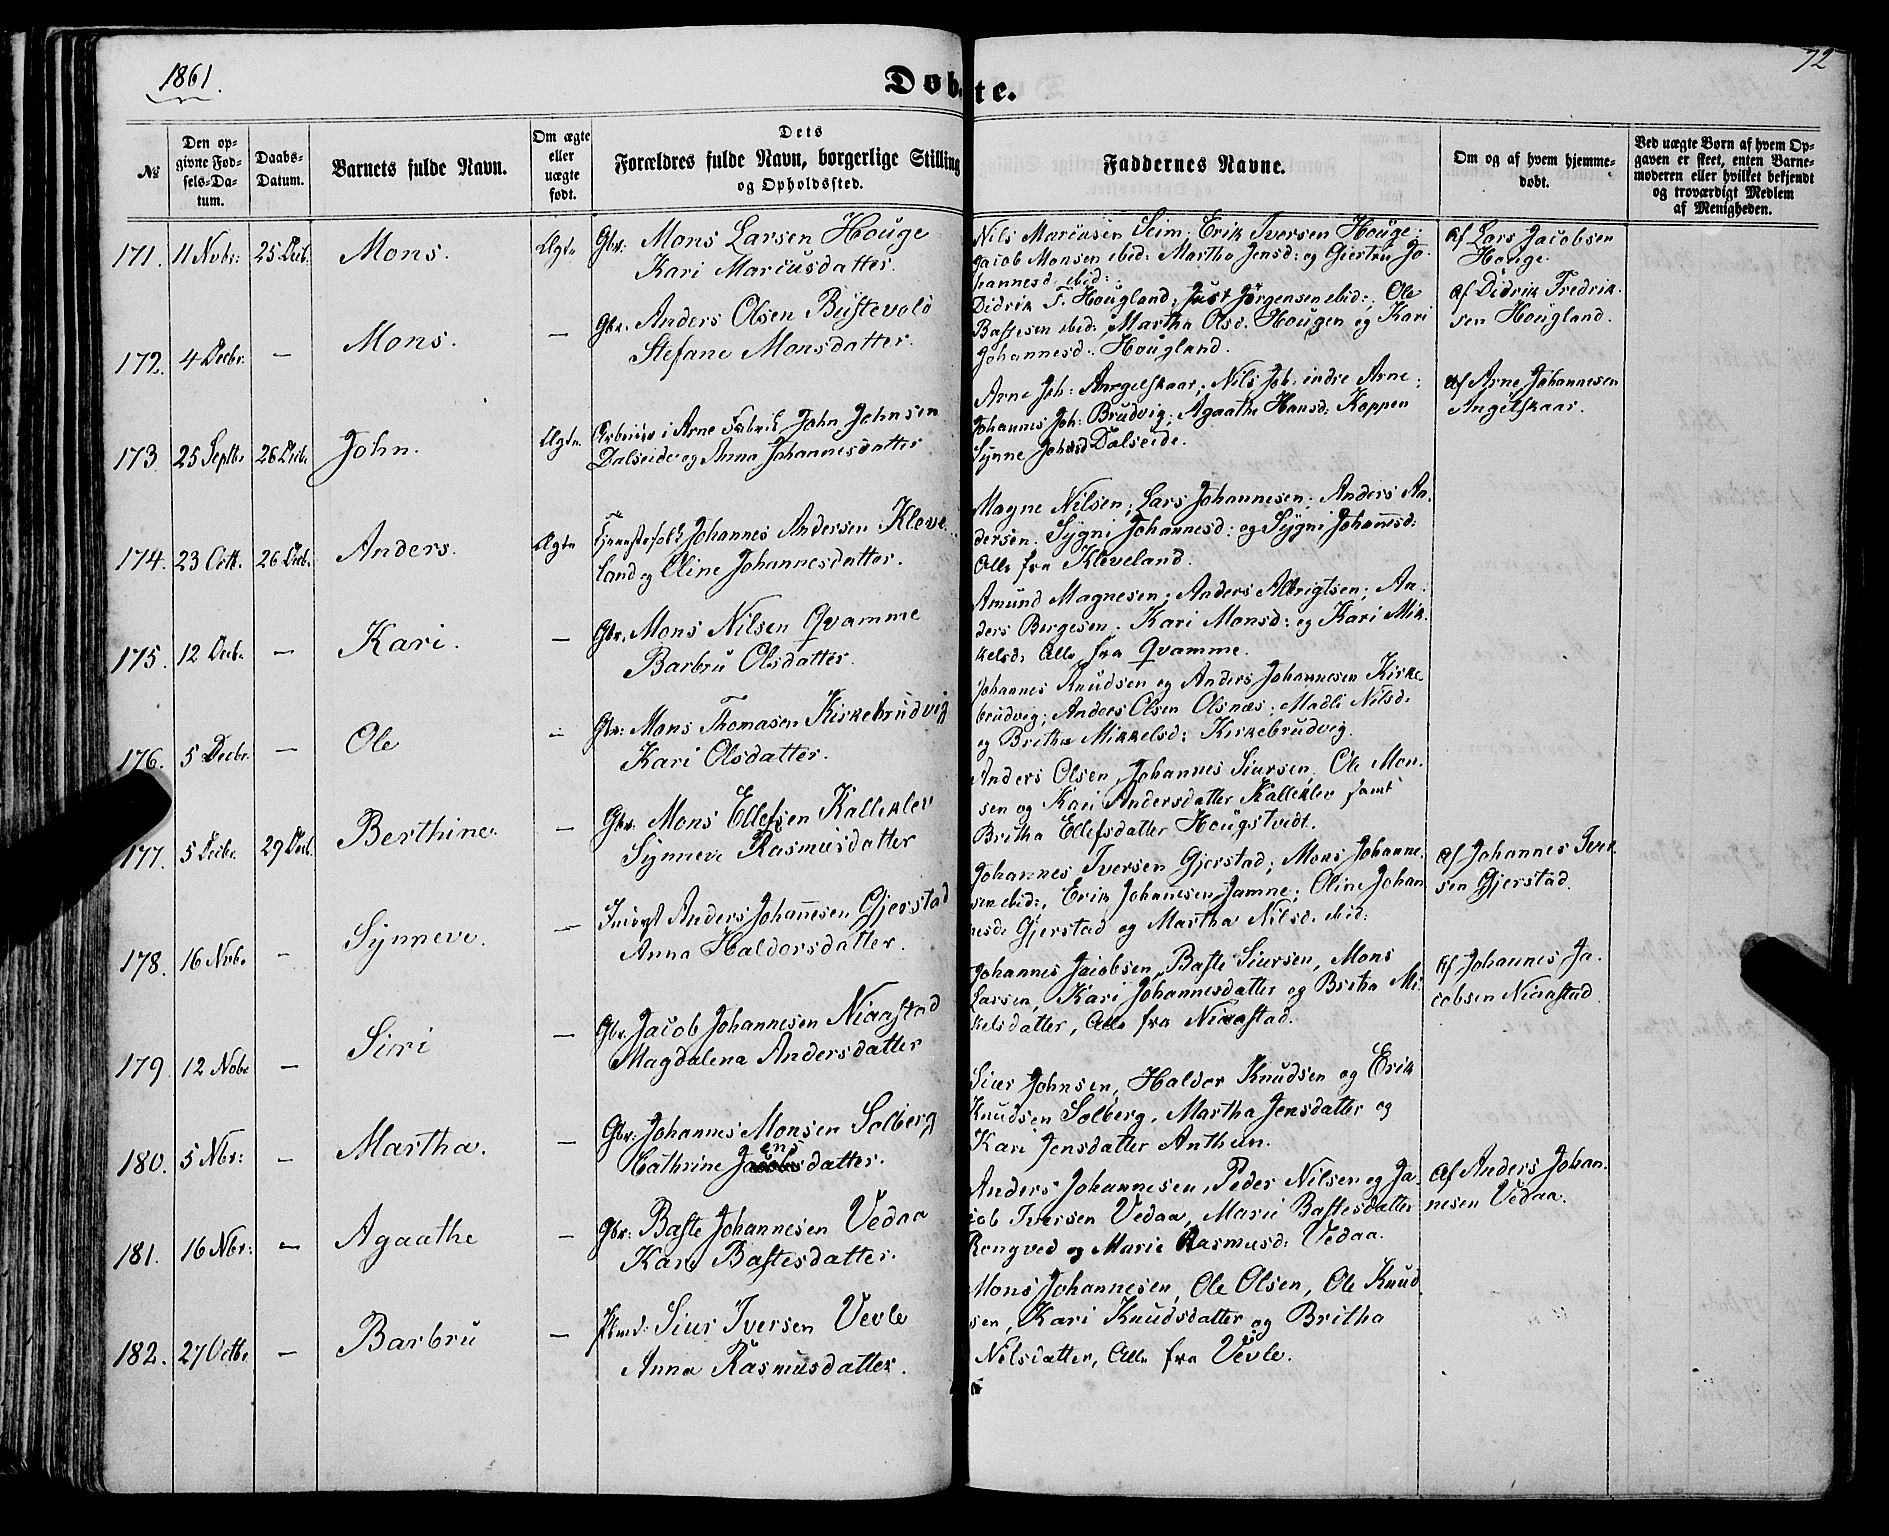 1861.
72
Døbte.
№
Den op-
givne Fød-
sels-Da-
tum.
Daabs-
Datum.
Barnets fulde Navn.
Om ægte
eller
uægte
født.
Dets
Forældres fulde Navn, borgerlige Stilling
og Opholdssted.
Faddernes Navne.
Om og af hvem hjemme-
døbt.
Ved uægte Børn af hvem Op-
gaven er skeet, enten Barne-
moderen eller hvilket bekjendt
og troværdigt Medlem
af Menigheden.
171. 11 Nvbr: 25 Decb. Mons. Ægte Gbr. Mons Larsen Houge
Kari Marcusdatter.
Nils Marcusen Seim, Erik Iversen Houge;
Jacob Monsen ibid: Martha Jensd: og Giertru Jo-
hannesd. ibid:
Af Lars Jacobsen
Houge.
172. 4 Decbr. — Mons. — Gbr. Anders Olsen Bustevold
Stefane Monsdatter.
Didrik F. Hougland, Just Jørgensen ibid:, Ole
Bastesen ibid. Martha Olsd. Hougen og Kari
Johannesd. Hougland.
Af Didrik Fredrik-
sen Hougland.
173. 25 Septbr 26 Decb. John. Ægte Arbeider i Arne Fabrik John Johnsen
Dalseide og Anna Johannesdatter
Arne Joh: Angelskaar; Nils Joh. indre Arne;
Johannes Joh: Brudvig; Agaathe Hansd. Koppen
Synne Johnsd Dalseide.
Af Arne Johannesen
Angelskaar.
174. 23 Octb. 26 Decb. Anders. Ægte Tjenestefolk Johannes Andersen Kleve-
land og Eline Johannesdatter.
Magne Nilsen; Lars Johannesen; Anders An-
dersen. Sygni Johannesd: og Sygni Johannesd:
Alle fra Kleveland.
175. 12 Decb. — Kari. — Gbr. Mons Nilsen Qvamme
Barbru Olsdatter.
Amund Magnesen; Anders Albrigtsen; An-
ders Bergesen. Kari Monsd: og Kari Mik-
kelsd. Alle fra Qvamme.
176. 5 Decbr. — Ole — Gbr: Mons Thomasen Kirkebrudvig
Kari Olsdatter.
Johannes Knudsen og Anders Johannesen Kirke-
brudvig; Anders Olsen Olsnæs; Madli Nilsd.
og Britha Mikkelsd: Kirkebrudvig.
177. 5 Decbr. 29 Decb. Berthine. — Gbr. Mons Ellefsen Kalleklev
Synneve Rasmusdatter
Anders Olsen, Johannes Siursen, Ole Mon-
sen og Kari Andersdatter Kalleklev samt
Britha Ellefsdatter Hougstvedt.
178. 16 Nvb. — Synneve. — Anders Johannesen Gjerstad
Anna Haldorsdatter.
Johannes Iversen Gjerstad; Mons Johanne-
sen ibid:, Erik Johannesen Jamne; Oline Johan-
nesd. Gjerstad og Martha Nilsd. ibid:
Af Johannes Iver-
sen Gjerstad.
179. 12 Nobr — Siri — Gbr. Jacob Johannesen Niaastad
Magdalena Andersdatter
Johannes Jacobsen, Baste Siursen, Mons
Larsen, Kari Johannesdatter og Britha Mi-
kelsdatter, Alle fra Niaastad.
Af Johannes Ja-
cobsen Niaastad.
180. 5 Nbr: — Martha. — Gbr. Johannes Monsen Solberg
Cathrine Jensdatter.
Siur Johnsen, Haldor Knudsen og Erik
Knudsen Solberg, Martha Jensdatter og
Kari Jensdatter Anthun.
181. 16 Nbr: — Agaathe — Gbr: Baste Johannesen Vedaa
Kari Bastesdatter.
Anders Johannesen, Peder Nilsen og Ja-
cob Iversen Vedaa, Marie Bastesdatter
Rongved og Marie Rasmusd: Vedaa.
Af Anders Johan-
nesen Vedaa.
182. 27 Octbr — Barbru — Siur Iversen Vevle
Anna Rasmusdatter.
Mons Johannesen, Ole Olsen, Ole Knud-
sen, Kari Knudsdatter og Britha
Nilsdatter, Alle fra Vevle.